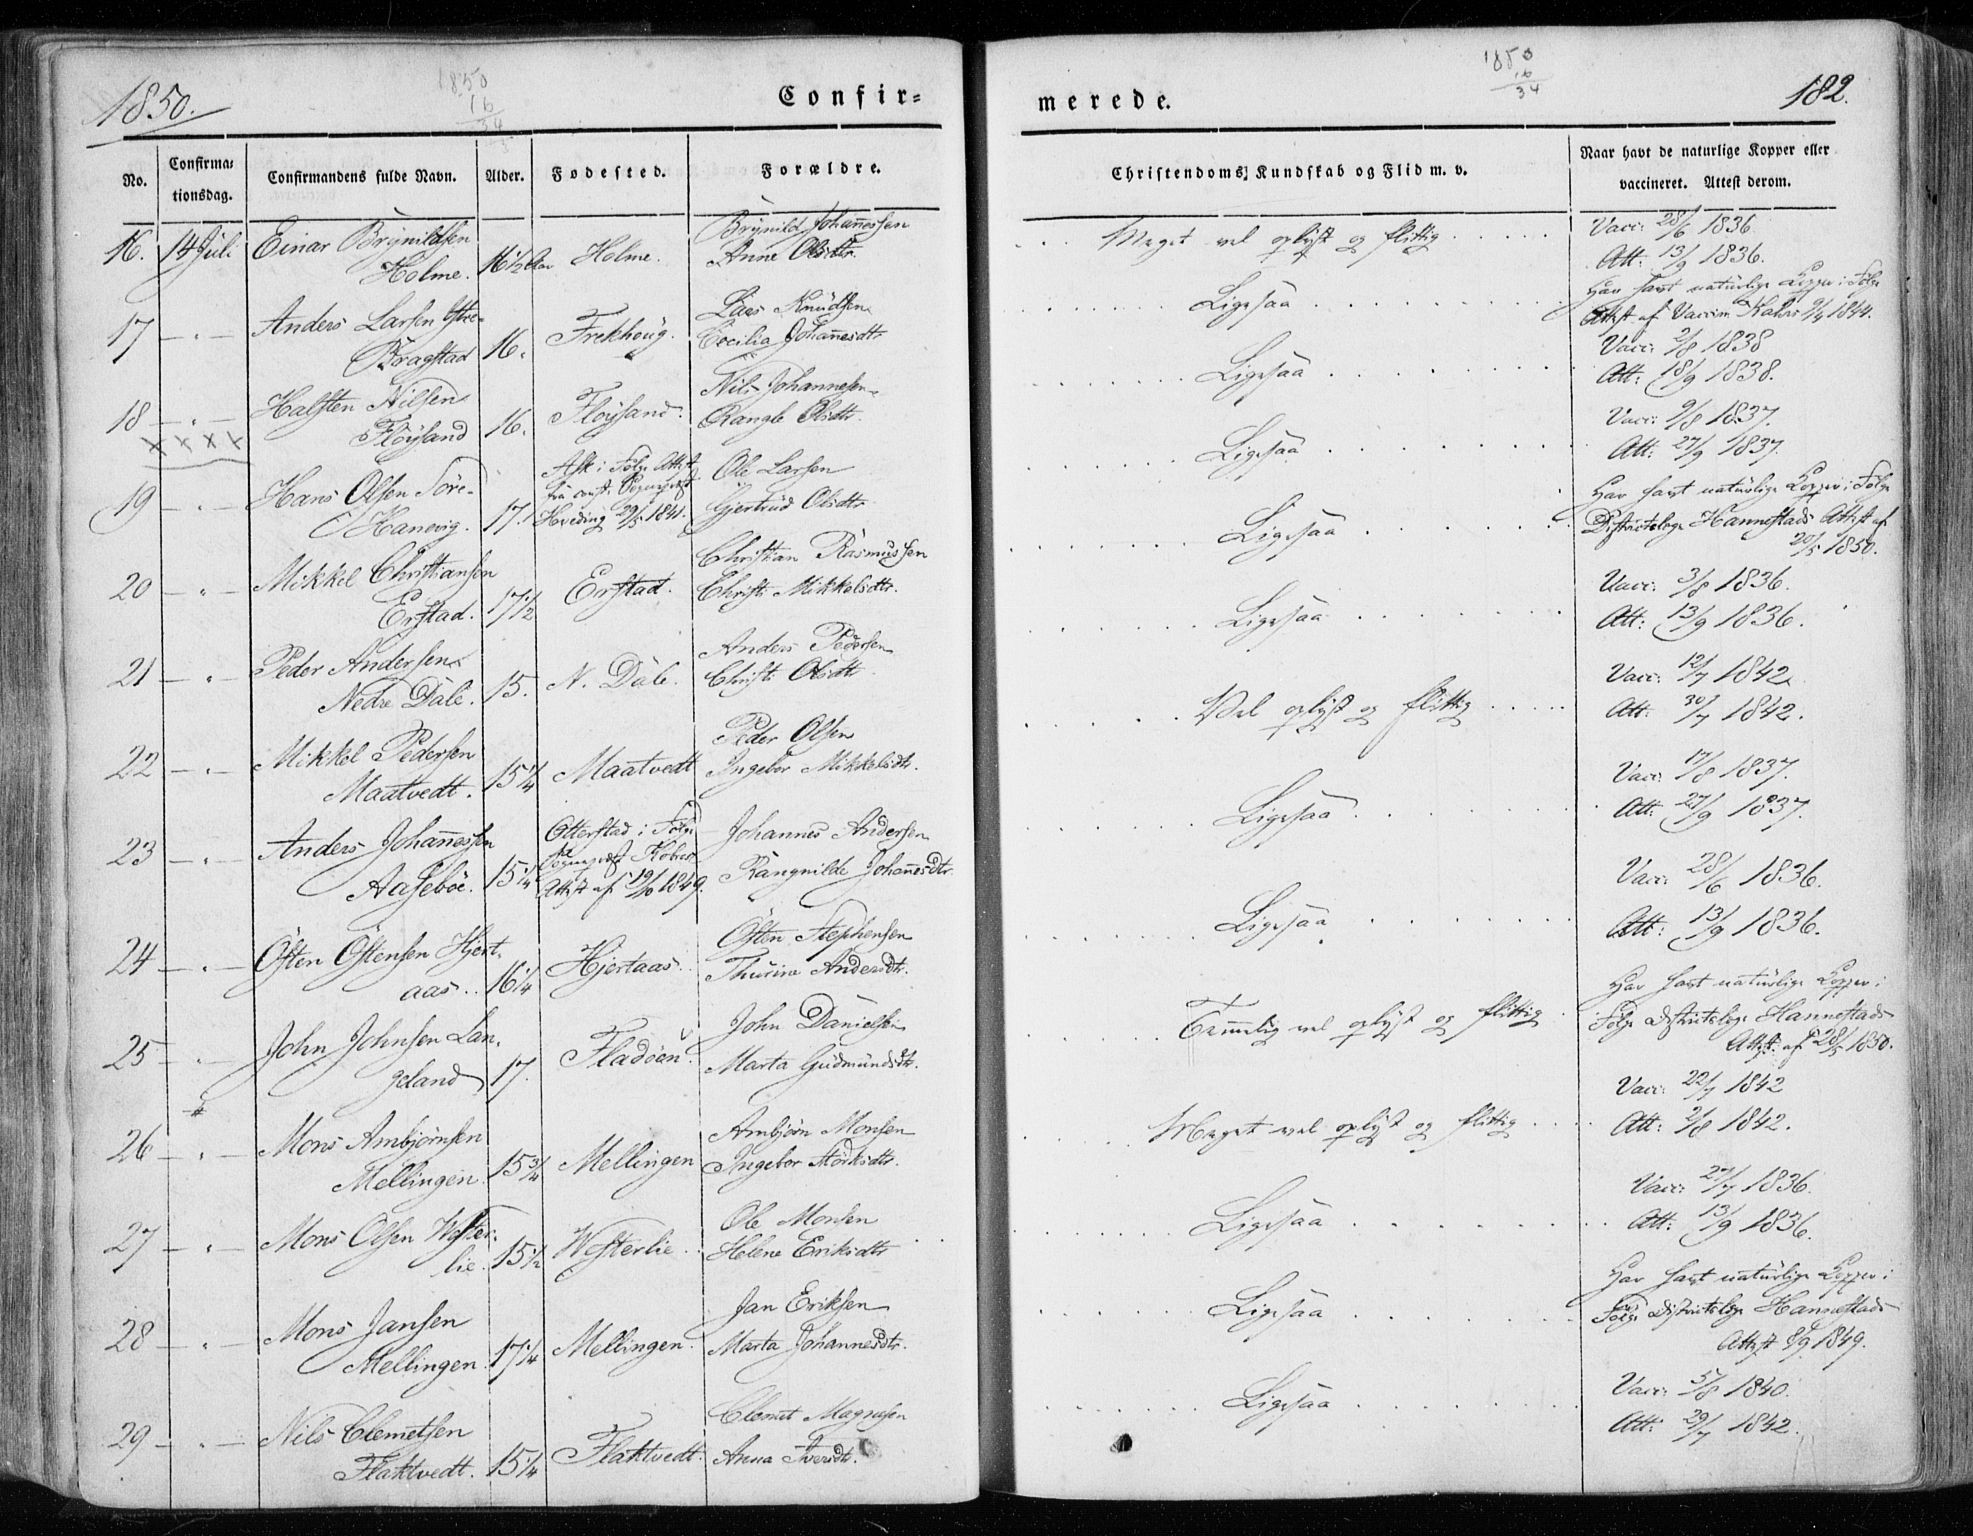 1850.
1850
16
34
Confir=
No.
Confirma=
tionsdag.
Confirmandens fulde Navn.
Alder.
Fødested.
Forældre.
16. 14 Juli Einar Brynildsen
Holme. 16 1/2 Aar Holme.
Brynild Johannessen
Anne Olsdtr.
17 — " — Anders Larsen Øvre-
Bragstad 16. Frekhoug.
Lars Knudsen
Cecilia Johannesdtr
18 — " — Halsten Nilsen
Fløysand 16. Fløysand.
Nils Johannesen
Rangle Olsdtr.
x x x x
19 — " — Hans Olsen Søre-
Hanevig. 17.
Ask i Følge Attest
fra const. Sognepræst
Hveding 29/5 1841.
Ole Larsen
Gjertrud Olsdtr
20 — " — Mikkel Christiansen
Erstad. 17 1/2 Erstad.
Christian Rasmussen
Christi Mikkelsdtr.
21 — " — Peder Andersen
Nedre Dale. 15. N. Dale.
Anders Pedersen
Christi Olsdtr
22 — " — Mikkel Pedersen
Maatvedt. 15 1/4 Maatvedt
Peder Olsen
Ingebor Mikkelsdtr.
23 — " — Anders Johannessen
Aasebøe. 15 1/4
Otterstad i Følge
Sognepræst
Attest af 19/10 1849.
Johannes Andersen
Rangnilde Johannesdtr.
24 — " — Østen Østensen Hjert-
aas. 16 1/4 Hjertaas.
Østen Stephensen
Thurine Andersdtr.
25 — " — John Johnsen Lan-
geland 17. Fladøen.
John Danielsen
Marta Gudmundsdtr.
26 — " — Mons Ambjørnsen
Mellingen. 15 3/4 Mellingen
Ambjørn Monsen
Ingebor Størksdtr.
27 — " — Mons Olsen Wester-
lie. 15 1/2 Westerlie.
Ole Monsen
Helene Eriksdtr
28 — " — Mons Jansen
Mellingen. 17 1/4 Mellingen.
Jan Eriksen
Marta Johannesdtr.
29 — " — Nils Clemetsen
Flaktvedt. 15 1/4 Flaktvedt.
Clemet Magnesen
Anna Iversdtr.
merede.
1850
16
34
182.
Christendoms Kundskab og Flid m. v.
Naar havt de naturlige Kopper eller
vaccineret. Attest derom.
Meget vel oplyst og flittig
Vacc: 28/6 1836
Att: 13/9 1836.
Ligesaa
Har havt naturlige Kopper i Følge
Attest af Vaccin. 9/4 1844.
Ligesaa
Vacc: 2/8 1838
Att: 18/9 1838.
Ligesaa
Vacc: 9/8 1837.
Att: 27/9 1837.
Ligesaa
Har havt naturlige Kopper i Følge
Districtslæge Hannestads Attest af
20/5 1850.
Ligesaa
Vacc: 3/8 1836.
Att: 13/9 1836.
Vel oplyst og flittig
Vacc: 12/7 1842
Att: 30/7 1842.
Ligesaa
Vacc: 17/8 1837.
Att: 27/9 1837.
Ligesaa
Vacc: 28/6 1836.
Att: 13/9 1836.
Temmelig vel oplyst og flittig
Har havt naturlige Kopper i
Følge Districtslæge Hannestads
Attest af 28/5 1850.
Meget vel oplyst og flittig
Vacc: 22/7 1842
Att: 2/8 1842.
Ligesaa
Vacc: 27/7 1836.
Att: 13/9 1836.
Ligesaa
Har havt naturlige Kopper i
Følge Districtslæge Hannestads
Attest 8/9 1849.
Ligesaa
Vacc: 5/8 1840.
Att: 29/7 1842.